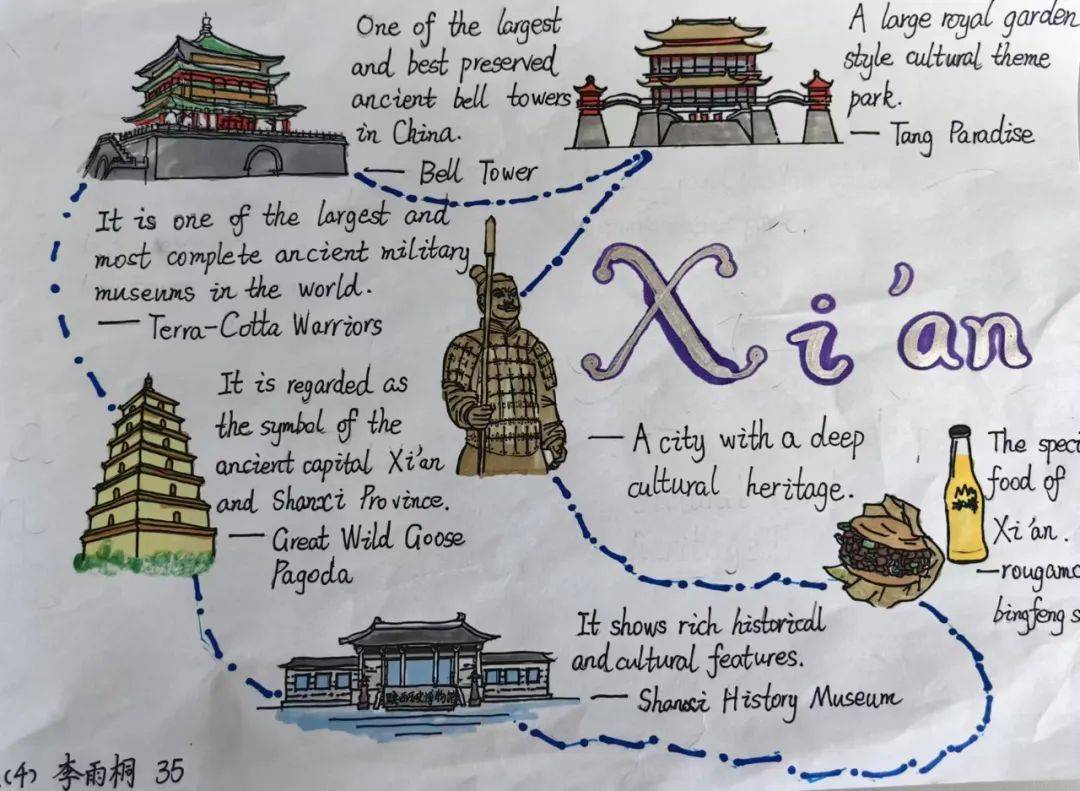 One of the largest
and best preserved
ancient bell towers
in China.
— Bell Tower
A large royal garden
style cultural theme
park.
— Tang Paradise
It is one of the largest and
most complete ancient military
museums in the world.
— Terra-Cotta Warriors
Xi'an
— A city with a deep
cultural heritage.
It is regarded as
the symbol of the
ancient capital Xi'an
and Shanxi Province.
— Great Wild Goose
Pagoda
The speci
food of
Xi'an.
— rougamo
bingfeng s
It shows rich historical
and cultural features.
— Shanxi History Museum
陕西历史博物馆
(4) 李雨桐 35